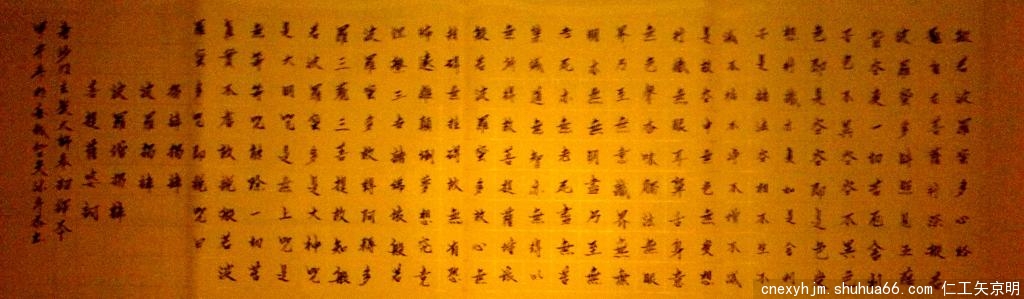 般若波羅蜜多心經
觀自在菩薩行深般若
波羅蜜多時照見五蘊
皆空度一切苦厄舍利
子色不異空空不異色
色即是空空即是色受
想行識亦復如是舍利
子是諸法空相不生不
滅不垢不淨不增不減
是故空中無色無受想
行識無眼耳鼻舌身意
無色聲香味觸法無眼
界乃至無意識界無無
明亦無無明盡乃至無
老死亦無老死盡無苦
集滅道無智亦無得以
無所得故菩提薩埵依
般若波羅蜜多故心無
罣礙無罣礙故無有恐
怖遠離顛倒夢想究竟
涅槃三世諸佛依般若
波羅蜜多故得阿耨多
羅三藐三菩提故知般
若波羅蜜多是大神咒
是大明咒是無上咒是
無等等咒能除一切苦
真實不虛故說般若波
羅蜜多咒即說咒曰
揭諦揭諦
波羅揭諦
波羅僧揭諦
菩提薩婆訶
沙門玄奘大師奉詔譯本
甲午年
cnexyhjm.shuhua66.com 仁工矢京明